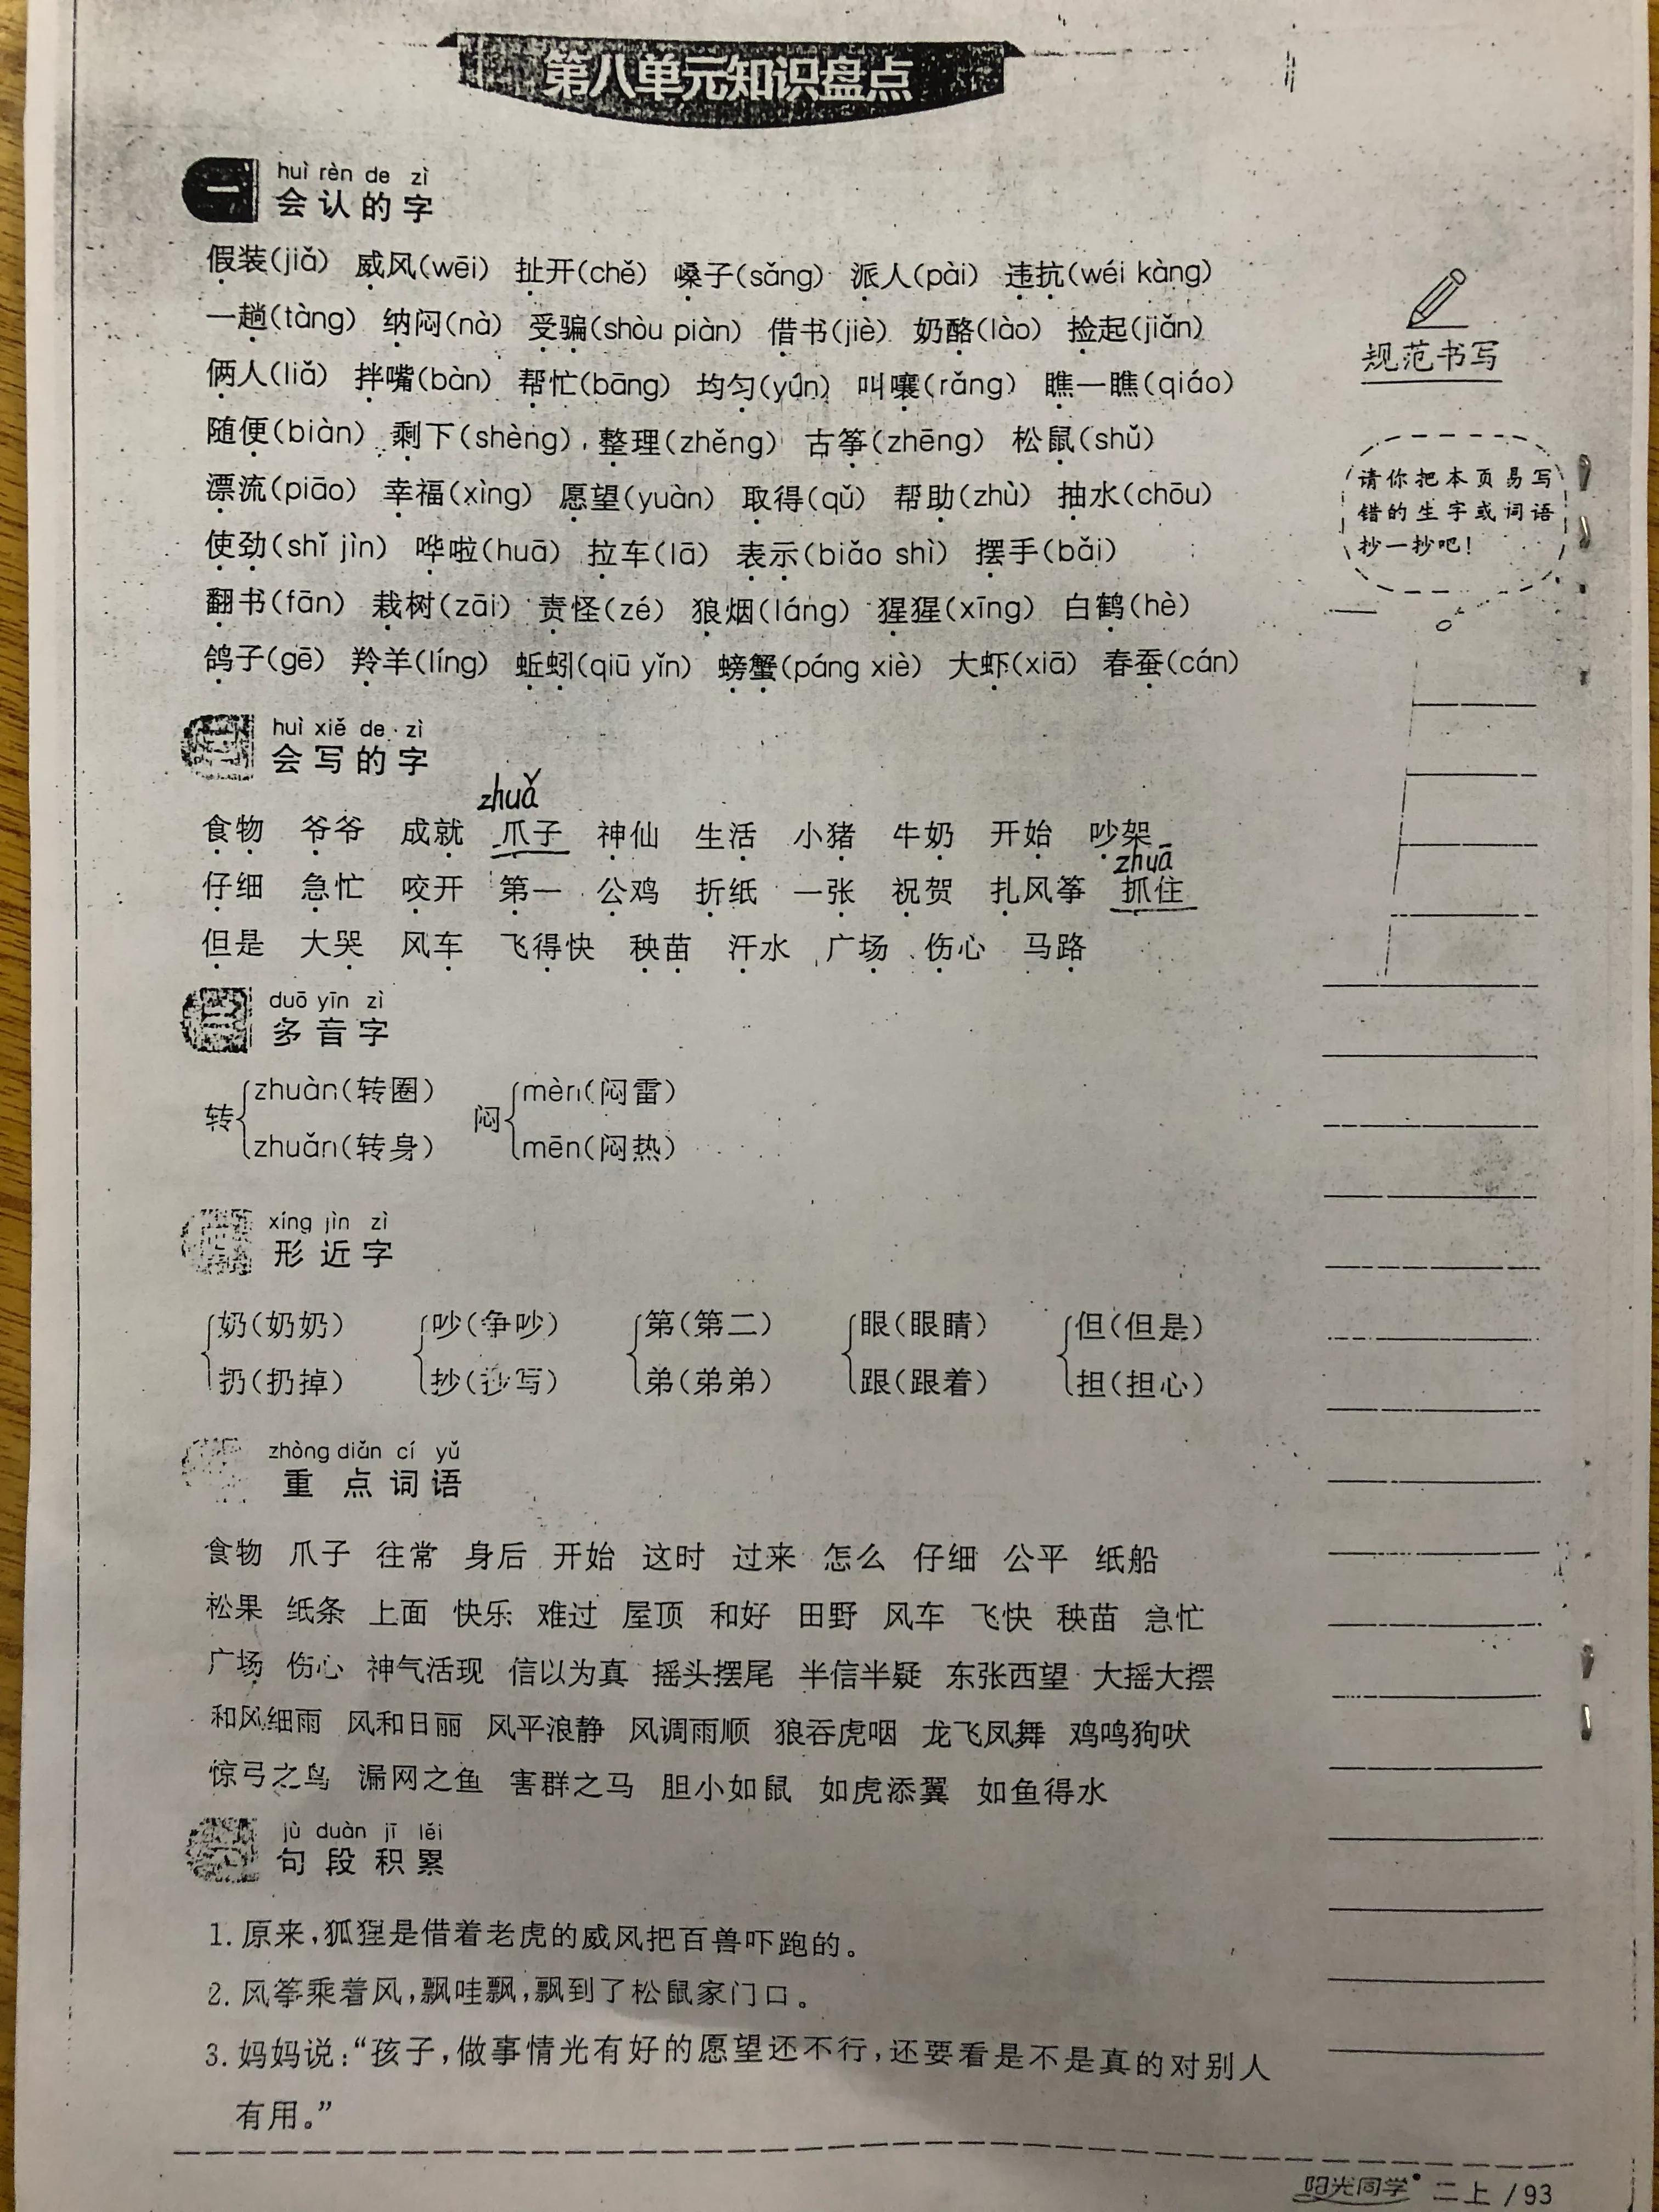 第八单元知识盘点
一
huì rèn de zì
会认的字
假装(jiǎ) 威风(wēi) 扯开(chě) 嗓子(sǎng) 派人(pài) 违抗(wéi kàng)
一趟(tàng) 纳闷(nà) 受骗(shòu piàn) 借书(jiè) 奶酪(lào) 捡起(jiǎn)
俩人(liǎ) 拌嘴(bàn) 帮忙(bāng) 均匀(yún) 叫嚷(rǎng) 瞧一瞧(qiáo)
随便(biàn) 剩下(shèng) 整理(zhěng) 古筝(zhēng) 松鼠(shǔ)
漂流(piāo) 幸福(xìng) 愿望(yuàn) 取得(qǔ) 帮助(zhù) 抽水(chōu)
使劲(shǐ jìn) 哗啦(huā) 拉车(lā) 表示(biǎo shì) 摆手(bǎi)
翻书(fān) 栽树(zāi) 责怪(zé) 狼烟(láng) 猩猩(xīng) 白鹤(hè)
鸽子(gē) 羚羊(líng) 蚯蚓(qiū yǐn) 螃蟹(páng xiè) 大虾(xiā) 春蚕(cán)
规范书写
请你把本页易写
错的生字或词语
抄一抄吧!
二
huì xiě de zì
会写的字
zhuǎ
食物 爷爷 成就 爪子 神仙 生活 小猪 牛奶 开始 吵架
zhuā
仔细 急忙 咬开 第一 公鸡 折纸 一张 祝贺 扎风筝 抓住
但是 大哭 风车 飞得快 秧苗 汗水 广场 伤心 马路
三
duō yīn zì
多音字
转 zhuàn(转圈) 闷 mèn(闷雷)
zhuǎn(转身) mēn(闷热)
xíng jìn zì
形近字
奶(奶奶) 吵(争吵) 第(第二) 眼(眼睛) 但(但是)
扔(扔掉) 抄(抄写) 弟(弟弟) 跟(跟着) 担(担心)
zhòng diǎn cí yǔ
重点词语
食物 爪子 往常 身后 开始 这时 过来 怎么 仔细 公平 纸船
松果 纸条 上面 快乐 难过 屋顶 和好 田野 风车 飞快 秧苗 急忙
广场 伤心 神气活现 信以为真 摇头摆尾 半信半疑 东张西望 大摇大摆
和风细雨 风和日丽 风平浪静 风调雨顺 狼吞虎咽 龙飞凤舞 鸡鸣狗吠
惊弓之鸟 漏网之鱼 害群之马 胆小如鼠 如虎添翼 如鱼得水
jù duàn jī lěi
句段积累
1. 原来,狐狸是借着老虎的威风把百兽吓跑的。
2. 风筝乘着风,飘哇飘,飘到了松鼠家门口。
3. 妈妈说:“孩子,做事情光有好的愿望还不行,还要看是不是真的对别人
有用。”
阳光同学 二上 /93